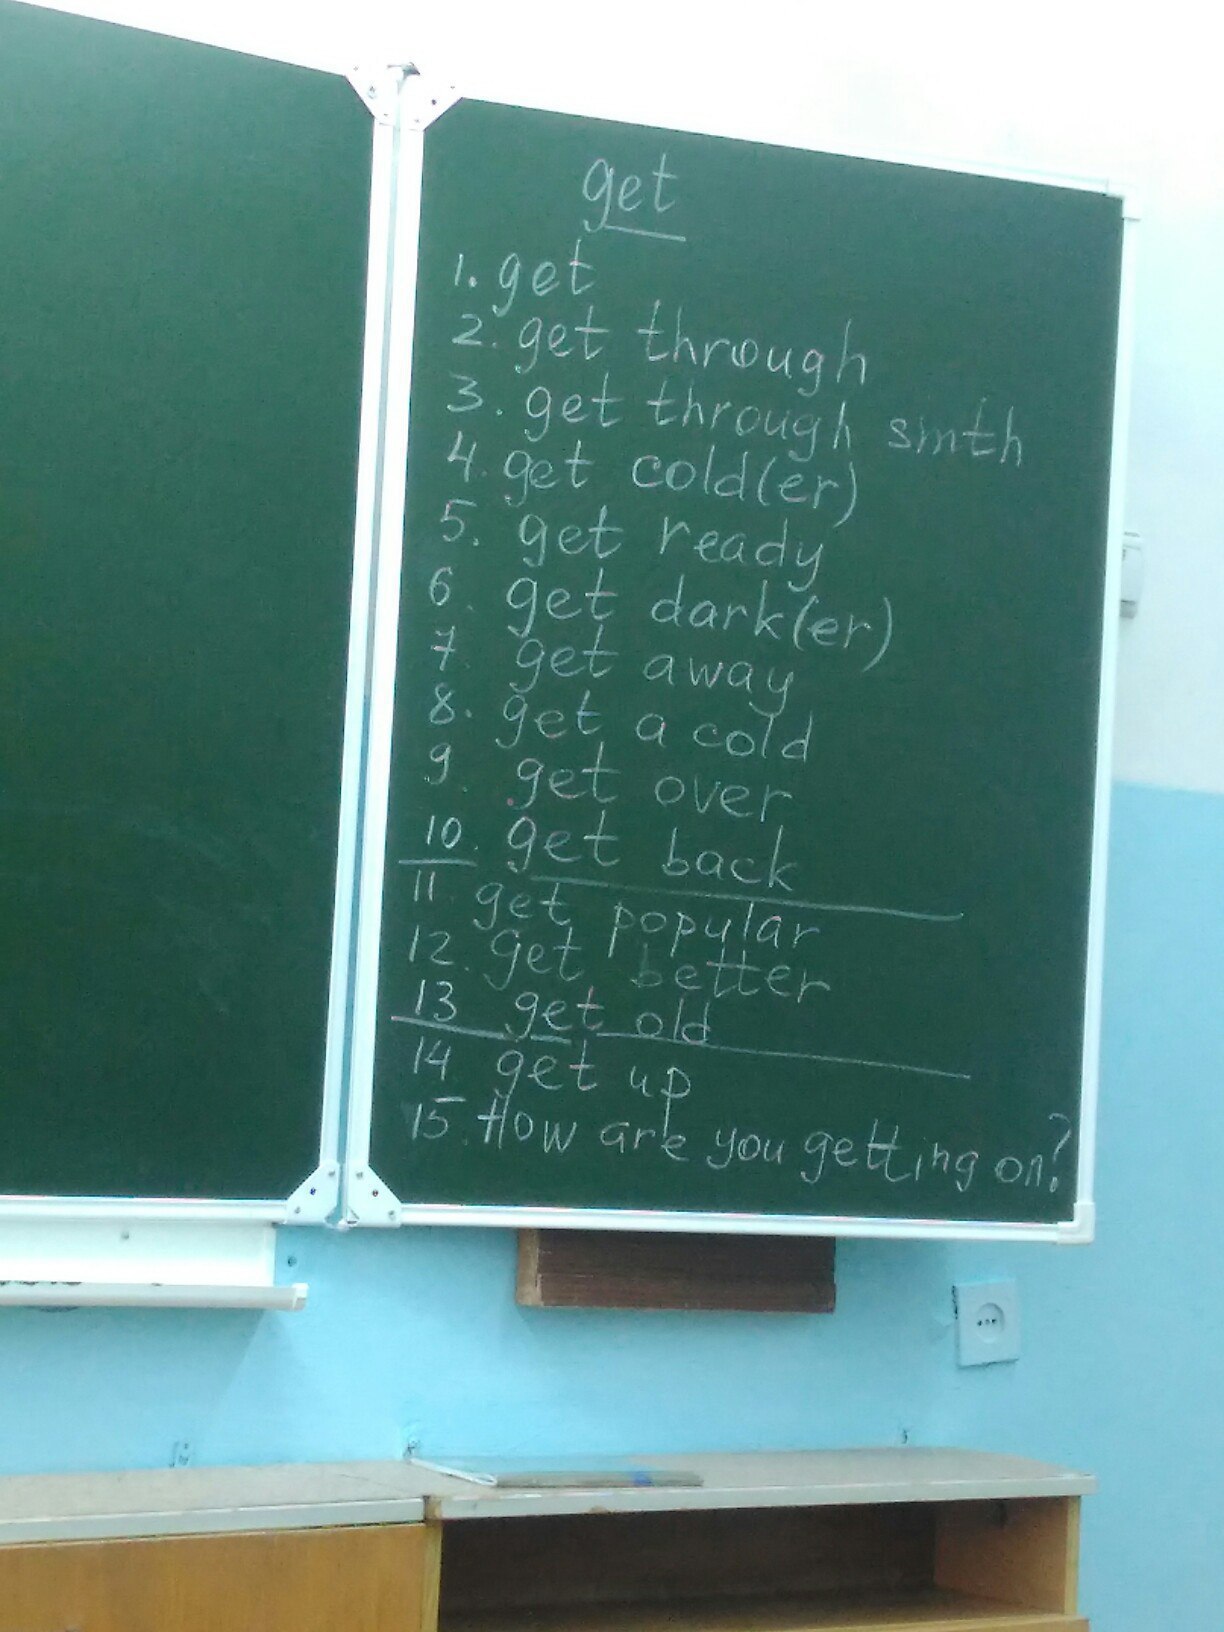 get
1. get
2. get through
3. get through smth
4. get cold(er)
5. get ready
6. get dark(er)
7. get away
8. get a cold
9. get over
10. get back
11. get popular
12. get better
13 get old
14 get up
15. How are you getting on?